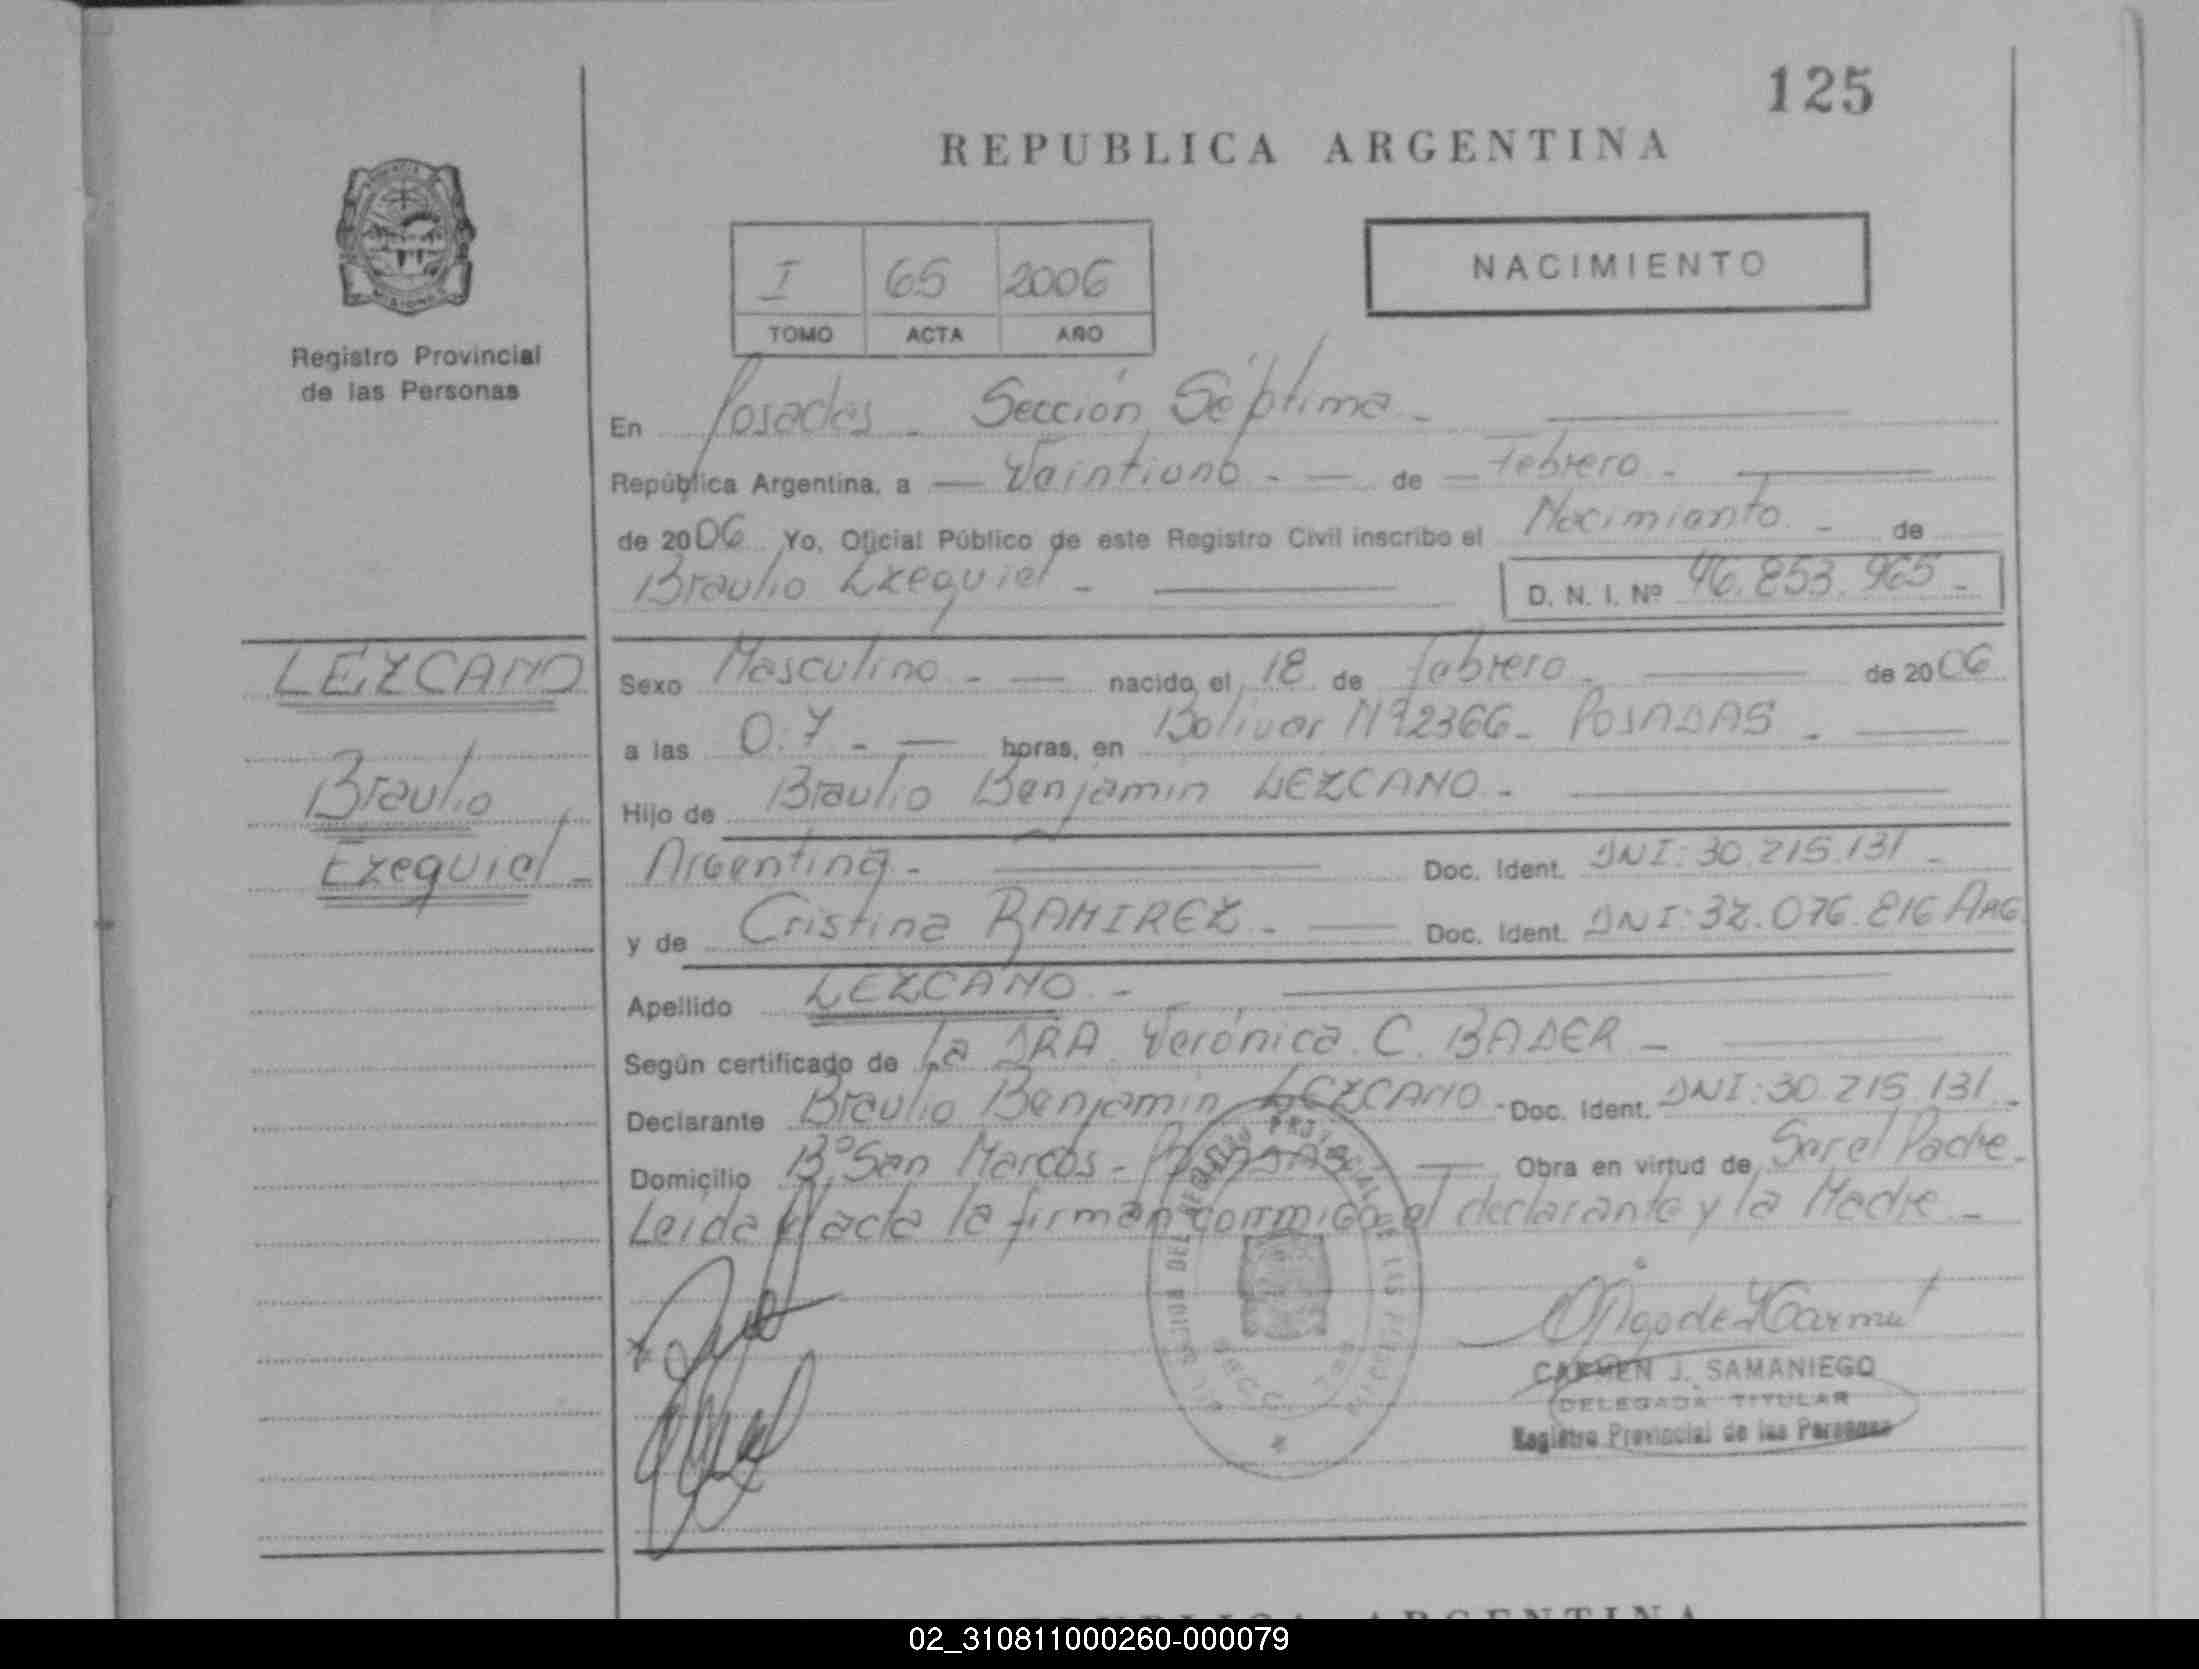 125
REPUBLICA ARGENTINA
Registro Provincial
de las Personas
I 65 2006
TOMO ACTA AÑO
NACIMIENTO
En Posadas - Sección Séptima -
República Argentina, a — Veintiuno - — de — febrero -
de 2006 Yo, Oficial Público de este Registro Civil inscribo el Nacimiento - de
Braulio Ezequiel - D. N. I. Nº 46.853.965 -
LEZCANO
Braulio
Ezequiel -
Sexo Masculino - — nacido el 18 de febrero - de 2006
a las 07 - — horas, en Bolivar Nº 2366 - POSADAS -
Hijo de Braulio Benjamin LEZCANO -
Argentina - Doc. Ident. DNI: 30.215.131 -
y de Cristina RAMIREZ - — Doc. Ident. DNI: 32.076.816 ARG
Apellido LEZCANO -
Según certificado de La DRA Verónica C. BADER -
Declarante Braulio Benjamin LEZCANO - Doc. Ident. DNI: 30.215.131 -
Domicilio Bº San Marcos - Posadas — Obra en virtud de Ser el Padre -
Leída el acta la firman conmigo el declarante y la Madre -
CARMEN J. SAMANIEGO
DELEGADA TITULAR
Registro Provincial de las Personas
REPUBLICA ARGENTINA
02_310811000260-000079